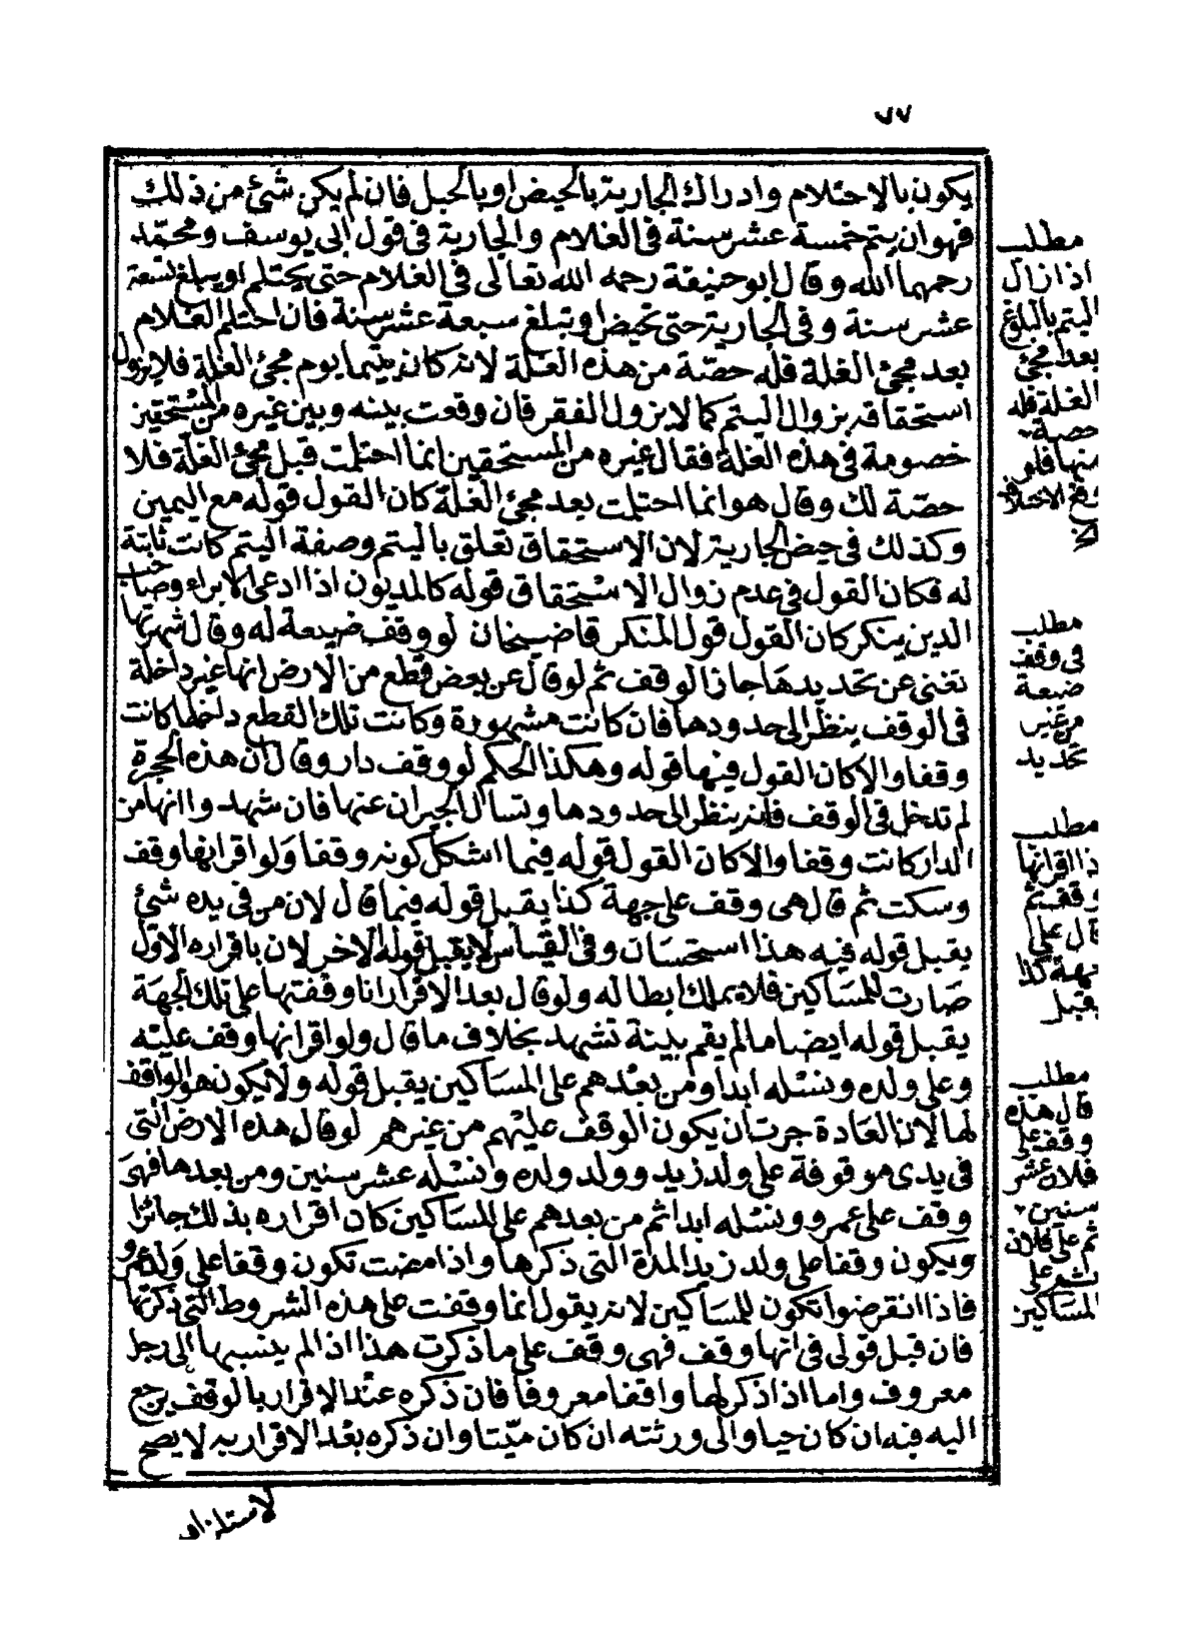 ٧٧
يكون بالاحتلام وادراك الجارية بالحيض او بالحبل فان لم يكن شئ من ذلك
فهو ان يتم خمسة عشر سنة فى الغلام والجارية فى قول ابى يوسف ومحمّد
رحمهما الله وقال ابو حنيفة رحمه الله تعالى فى الغلام حتى يحتلم او يبلغ تسعة
عشر سنة وفى الجارية حتى تحيض او تبلغ سبعة عشر سنة فان احتلم الغلام
بعد مجئ الغلة فله حصّة من هذه الغلة لانه كان يتيما يوم مجئ الغلة فلا يزول
استحقاقه بزوال اليتم كما لا يزول الفقر فان وقعت بينه وبين غيره من المستحقين
خصومة فى هذه الغلة فقال غيره من المستحقين انما احتلمت قبل مجئ الغلة فلا
حصّة لك وقال هو انما احتلمت بعد مجئ الغلة كان القول قوله مع اليمين
وكذلك فى حيض الجارية لان الاستحقاق تعلق باليتم وصفة اليتم كانت ثابتة
له فكان القول فى عدم زوال الاستحقاق قوله كالمديون اذا ادعى الابراء وصاحب
الدين ينكر كان القول قول المنكر قاضيخان لو وقف ضيعة له وقال شهرتها
تغنى عن تحديدها جاز الوقف ثم لو قال عن بعض قطع من الارض انها غير داخلة
فى الوقف ينظر الى حدودها فان كانت مشهورة وكانت تلك القطع داخلها كانت
وقفا والا كان القول فيها قوله وهكذا الحكم لو وقف دار وقال ان هذه الحجرة
لم تدخل فى الوقف فانه ينظر الى حدودها وتسأل الجيران عنها فان شهدوا انها من
الدار كانت وقفا والا كان القول قوله فيما اشكل كونه وقفا ولو اقر انها وقف
وسكت ثم قال هى وقف على جهة كذا يقبل قوله فيما قال لان من فى يده شئ
يقبل قوله فيه هذا استحسان وفى القياس لا يقبل قوله الاخر لان باقراره الاول
صارت للمساكين فلا يملك ابطاله ولو قال بعد الاقرار انا وقفتها على تلك الجهة
يقبل قوله ايضا ما لم يقم بينة تشهد بخلاف ما قال ولو اقر انها وقف عليه
وعلى ولده ونسله ابدا ومن بعدهم على المساكين يقبل قوله ولا يكون هو الواقف
لها لان العادة جرت ان يكون الوقف عليهم من غيرهم لو قال هذه الارض التى
فى يدى موقوفة على ولد زيد وولد ولده ونسله عشر سنين ومن بعدها فهى
وقف على عمرو ونسله ابدا ثم من بعدهم على المساكين كان اقراره بذلك جائزا
ويكون وقفا على ولد زيد المدة التى ذكرها واذا مضت تكون وقفا على ولد عمرو
فاذا انقرضوا تكون للمساكين لانه يقول انما وقفت على هذه الشروط التى ذكرتها
فان قبل قولى فى انها وقف فهى وقف على ما ذكرت هذا اذا لم ينسبها الى رجل
معروف واما اذا ذكر لها واقفا معروفا فان ذكره عند الاقرار بالوقف يرجع
اليه فيه ان كان حيا والى ورثته ان كان ميّتا وان ذكره بعد الاقرار به لا يصح
لاستلزامه
مطلب
اذا زال
اليتم بالبلوغ
بعد مجئ
الغلة فله
حصة
منها فلو
وقع الاختلاف
الخ
مطلب
فى وقف
ضيعة
من غير
تحديد
مطلب
ذا اقر انها
وقف ثم
قال على
جهة كذا
قبل
مطلب
قال هذه
وقف على
فلان عشر
سنين
ثم على فلان
ثم على
المساكين